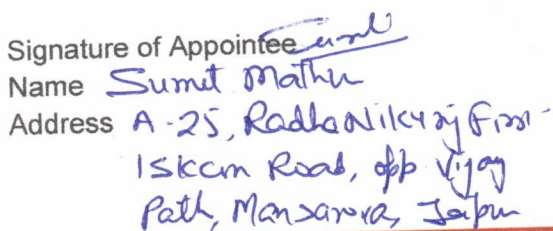 Signature of Appointee Sumit
Name Sumit Mathur
Address A-25, Radha Nikunj First-
Iskcon Road, opp Vijay
Path, Mansarovar, Jaipur